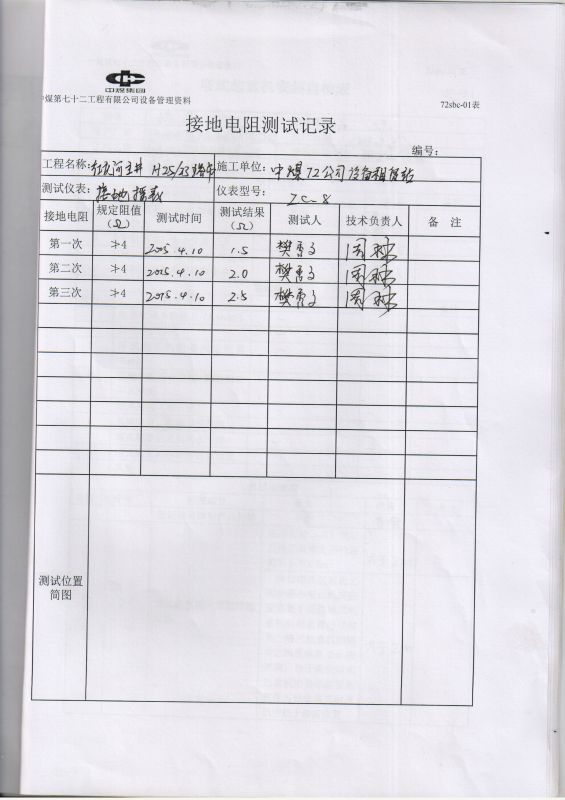 中煤集团
中煤第七十二工程有限公司设备管理资料 72sbc-01表
接地电阻测试记录
编号：
工程名称: 红 河主井 施工单位: 中煤72公司设备租赁站
测试仪表: 接地摇表 仪表型号: ZC-8
接地电阻 规定阻值（Ω） 测试时间 测试结果（Ω） 测试人 技术负责人 备 注
第一次 ≯4 2015.4.10 1.5 樊 周
第二次 ≯4 2015.4.10 2.0 樊 周
第三次 ≯4 2015.4.10 2.5 樊 周
测试位置
简图